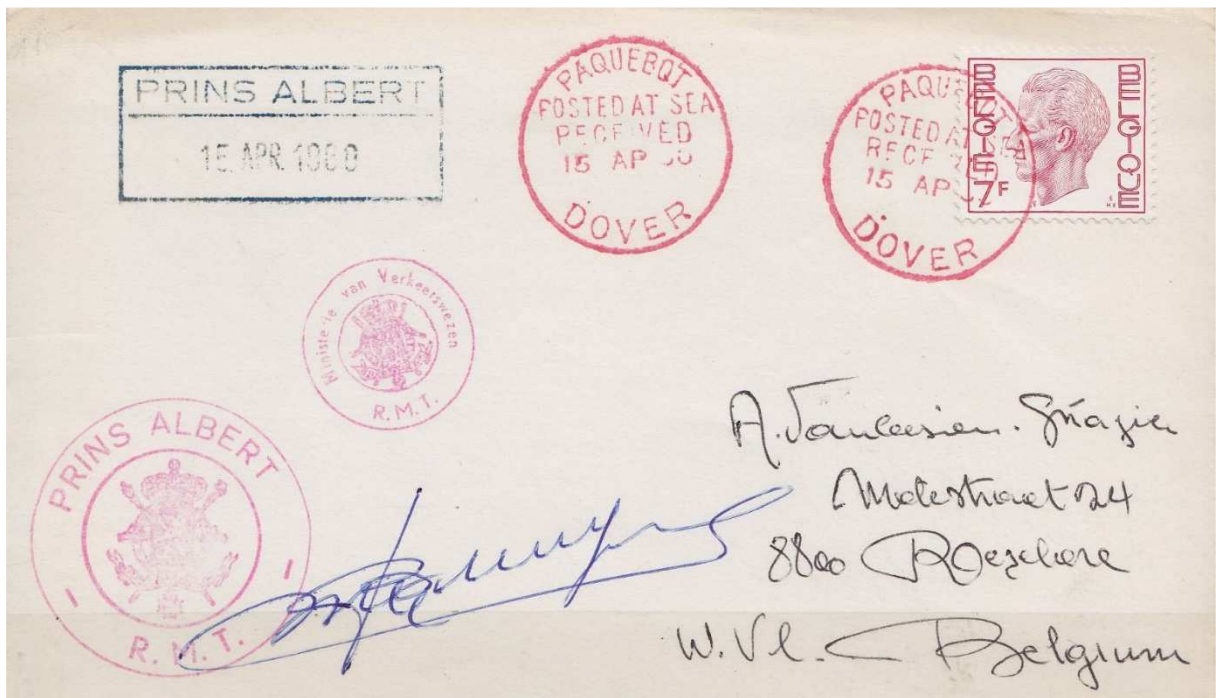 PRINS ALBERT
15. APR. 1980
PAQUEBOT
POSTED AT SEA
RECEIVED
15 AP
DOVER
PAQUEBOT
POSTED AT SEA
RECEIVED
15 AP
DOVER
BELGIË BELGIQUE
7F
Ministerie van Verkeerswezen
R.M.T.
PRINS ALBERT
R.M.T.
A.
24
8800 Roeselare
W. Vl. Belgium